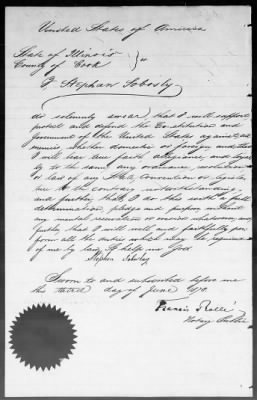 United States of America
State of Illinois
County of Cook } ss
I Stephan Sobosly
do solemnly swear, that I will support
protect and defend the Constitution and
government of the United States against all
enemies, whether domestic or foreign and that
I will bear true faith, allegiance, and loyal-
ty to the same, any ordinance, resolution
or law of any State, Convention or legisla-
ture to the contrary notwithstanding,
and further, that I do this with a full
determination, pledge and purpose, without
any mental reservation or evasion whatsoever, and
further, that I will well and faithfully per-
form all the duties which may be required
of me by law, So help me God
Stephan Sobosly
Sworn to and subscribed before me
this third day of June
Francis
Notary Public